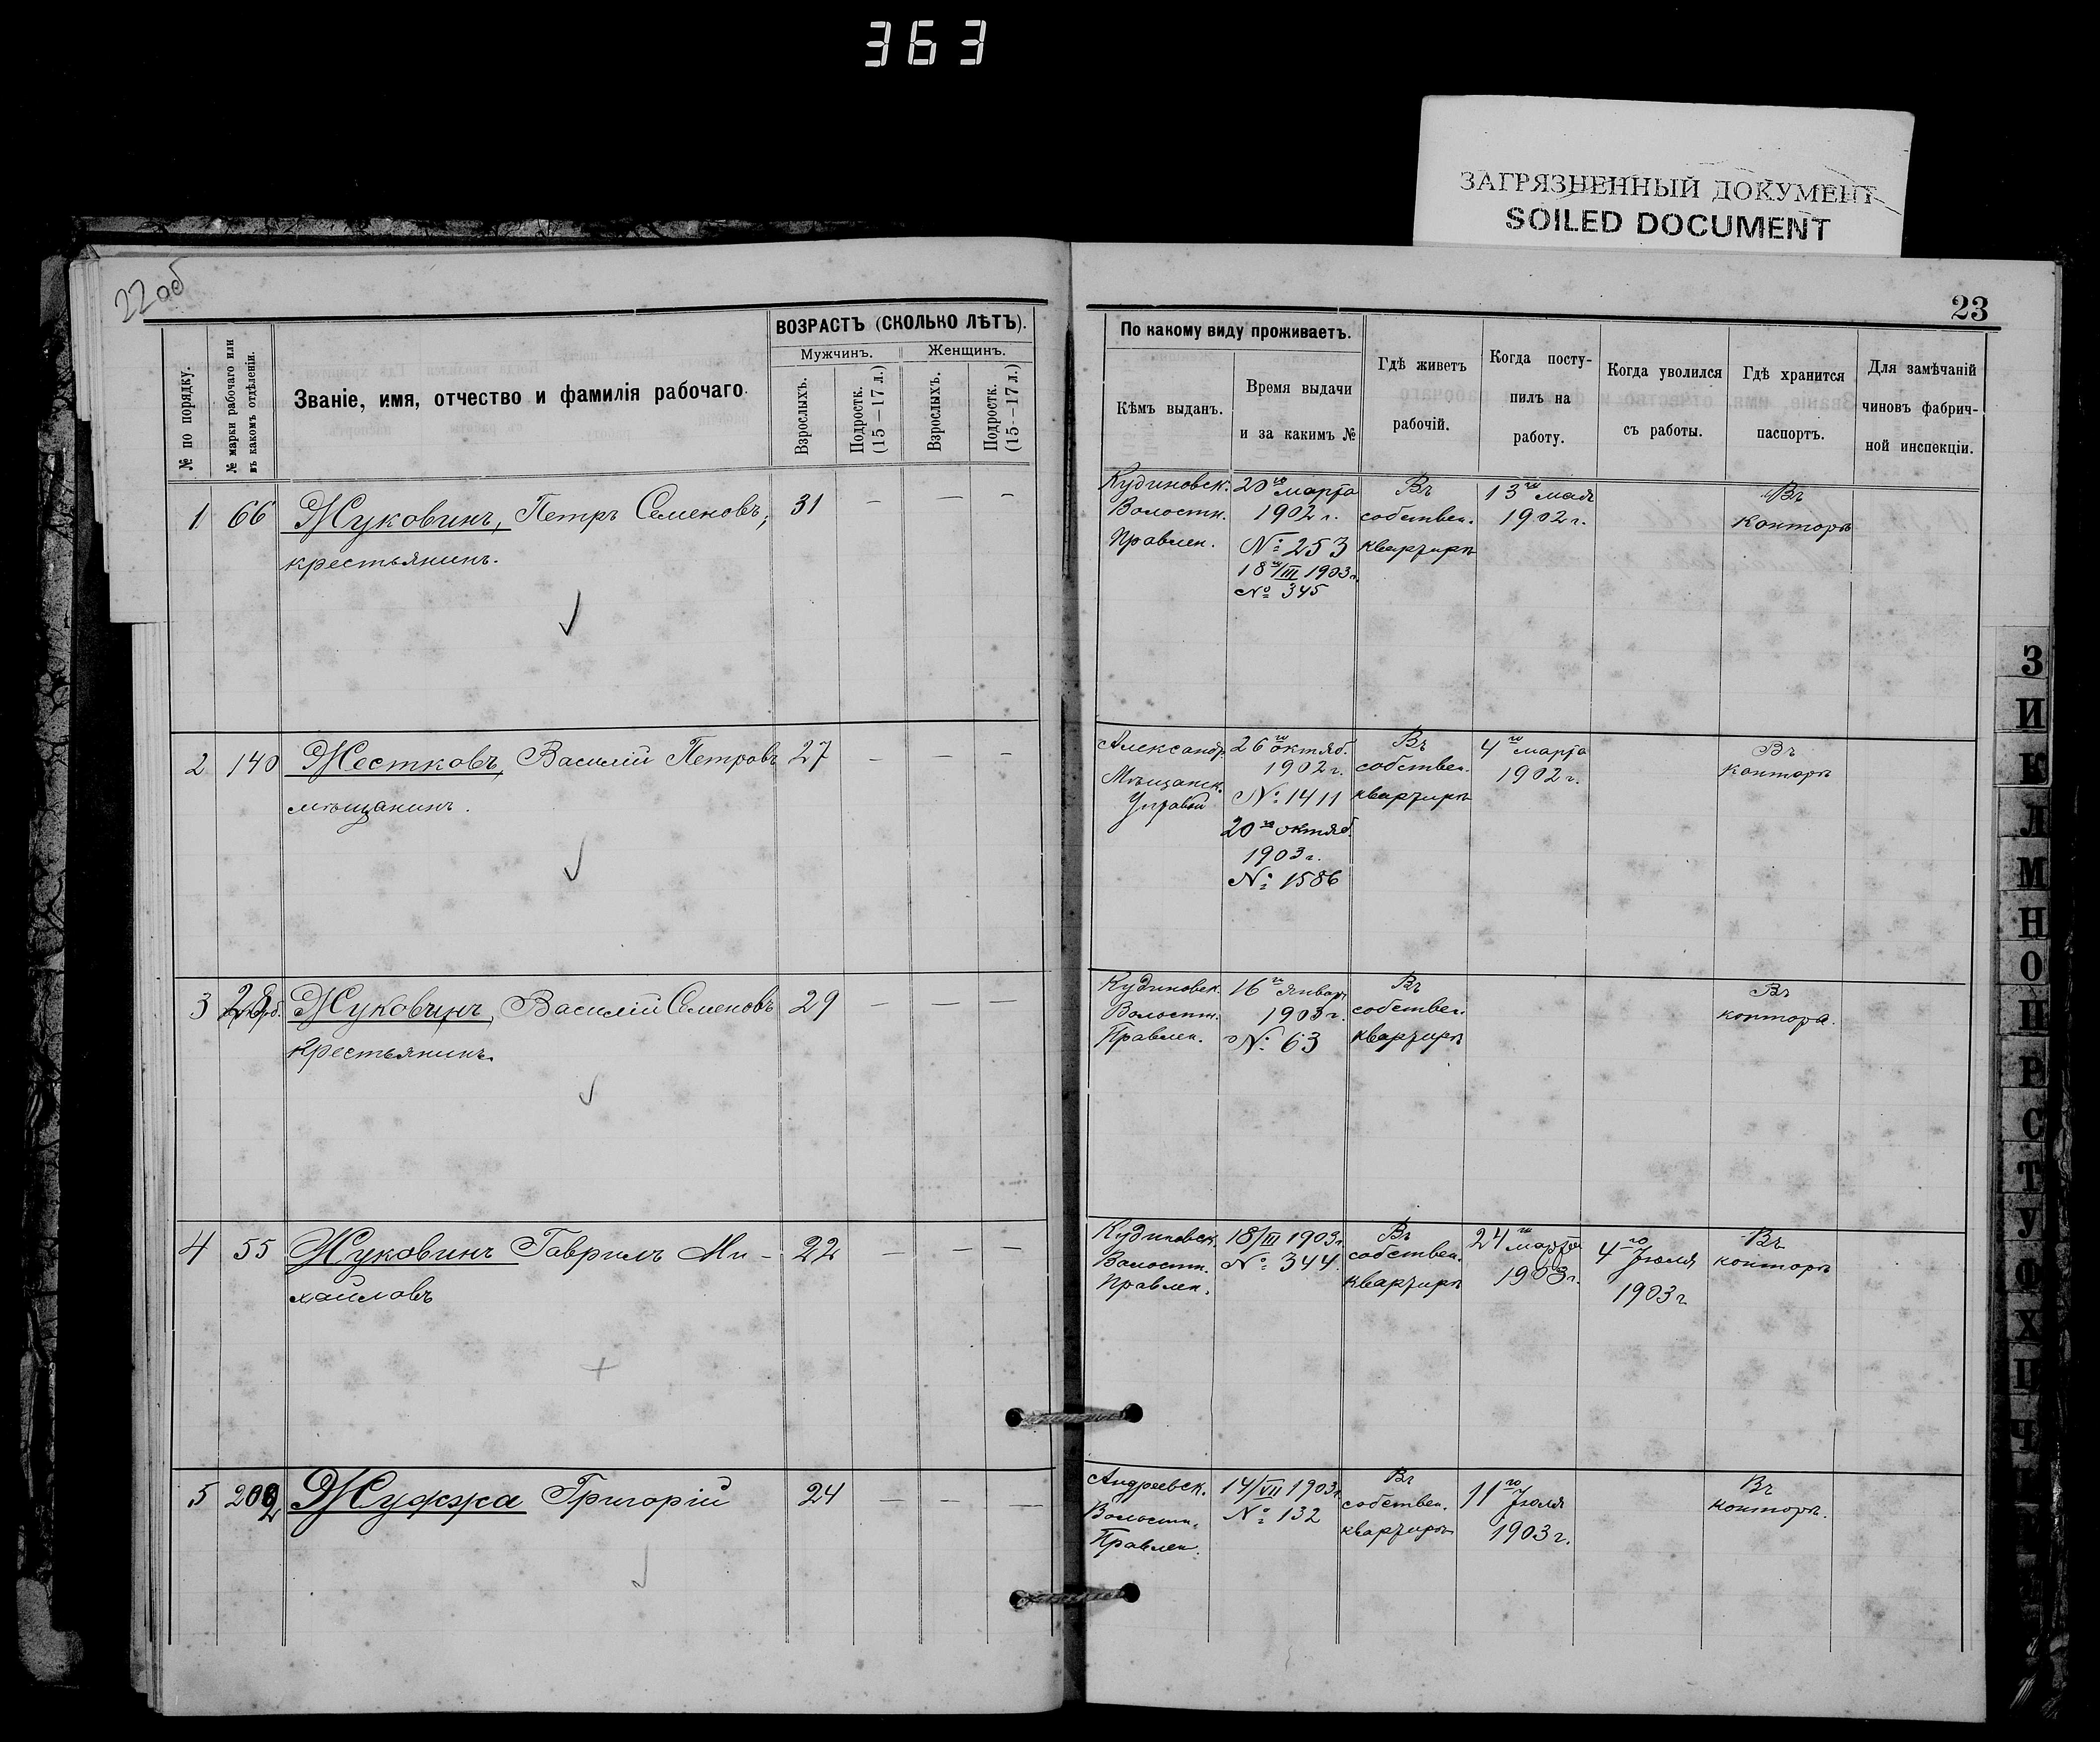 363
ЗАГРЯЗНЕННЫЙ ДОКУМЕНТ
SOILED DOCUMENT
22об
23
№ по порядку.
№ марки рабочаго или
въ какомъ отдѣленіи.
Званіе, имя, отчество и фамилія рабочаго.
ВОЗРАСТЪ (СКОЛЬКО ЛѢТЪ).
Мужчинъ.
Женщинъ.
Взрослыхъ.
Подростк.
(15—17 л.)
Взрослыхъ.
Подростк.
(15—17 л.)
По какому виду проживаетъ.
Кѣмъ выданъ.
Время выдачи
и за какимъ №
Гдѣ живетъ
рабочій.
Когда посту-
пилъ на
работу.
Когда уволился
съ работы.
Гдѣ хранится
паспортъ.
Для замѣчаній
чиновъ фабрич-
ной инспекціи.
1 66 Жуковинъ, Петръ Семеновъ, 31 — — —
крестьянинъ.
Кудиновск.
Волостн.
Правлен.
20го марта
1902 г.
№ 253
18го/III 1903 г.
№ 345
Въ
собствен.
квартирѣ
13го мая
1902 г.
Въ
Конторѣ
2 140 Жестковъ, Василій Петровъ 27 — — —
мѣщанинъ.
Александр.
Мѣщанск.
Управой
26го октяб.
1902 г.
№ 1411
20го октяб.
1903 г.
№ 1586
Въ
собствен.
квартирѣ
4го марта
1902 г.
Въ
Конторѣ
3 Жуковинъ, Василій Семеновъ 29 — — —
Крестьянинъ.
Кудиновск.
Волостн.
Правлен.
16го январ.
1903 г.
№ 63
Въ
собствен.
квартирѣ
Въ
контора.
4 55 Жуковинъ Гаврилъ Ми- 22 — — —
хаиловъ
Кудиновск.
Волостн.
Правлен.
18/III 1903 г.
№ 344.
Въ
собствен.
квартирѣ
24го марта
1903 г.
4го Іюля
1903 г
Въ
конторѣ
5 Жуфжа Григорій 24 — — —
Андреевск.
Волостн.
Правлен.
14/VII 1903 г.
№ 132
Въ
собствен.
квартирѣ
11го Іюля
1903 г.
Въ
конторѣ.
З
И
К
Л
М
Н
О
П
Р
С
Т
У
Ф
Х
Ц
Ч